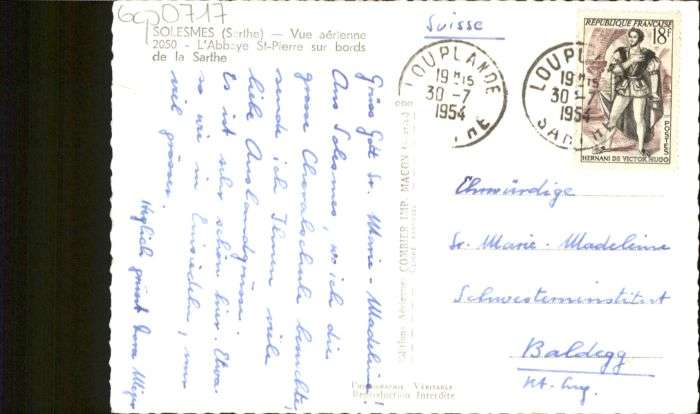 6cp0717
SOLESMES (Sarthe) — Vue aérienne
2050 - L'Abbaye St-Pierre sur bords
de la Sarthe
Grüss Gott Sr. Marie-Madeleine!
Aus Solesmes, wo ich die
grosse Choralschule besuchte,
sende ich Ihnen viele
liebe Auslandgrüsse.
Es ist sehr schön hier. Etwa
so wie in Einsiedeln, nur
viel grösser.
Herzlich grüsst
COMBIER IMP. MACON
Photographie Véritable
Reproduction Interdite
Suisse
LOUPLANDE
19H15
30-7
1954
SARTHE
LOUPLANDE
19H15
30-7
1954
SARTHE
REPUBLIQUE FRANÇAISE
18F
POSTES
HERNANI DE VICTOR HUGO
Ehrwürdige
Sr. Marie-Madeleine
Schwesterninstitut
Baldegg
Kt. Luz.